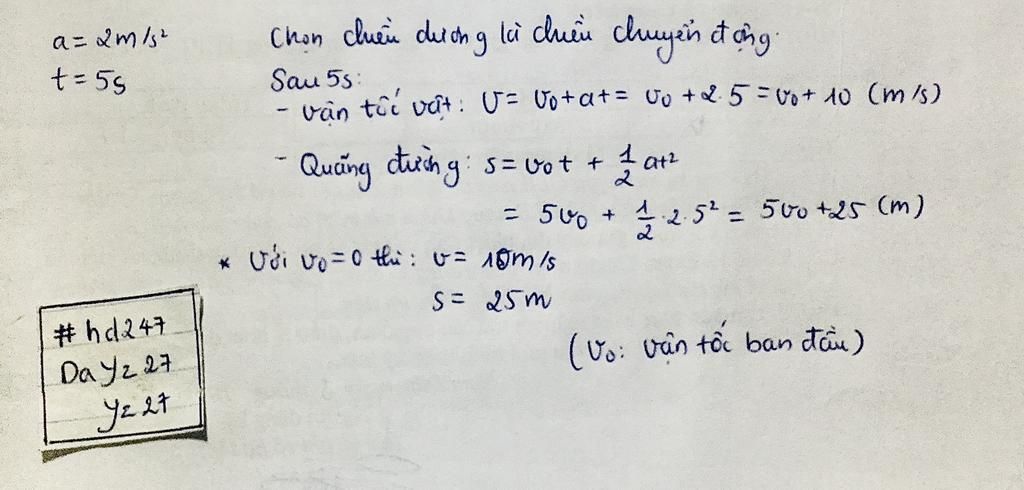 a = 2m/s²
t = 5s
Chọn chiều dương là chiều chuyển động.
Sau 5s:
- vận tốc vật: v = v₀ + at = v₀ + 2.5 = v₀ + 10 (m/s)
- Quãng đường: s = v₀t + 1/2 at²
= 5v₀ + 1/2 .2.5² = 5v₀ + 25 (m)
* Với v₀ = 0 thì: v = 10m/s
s = 25m
(v₀: vận tốc ban đầu)
#hd247
Dayz27
yz27